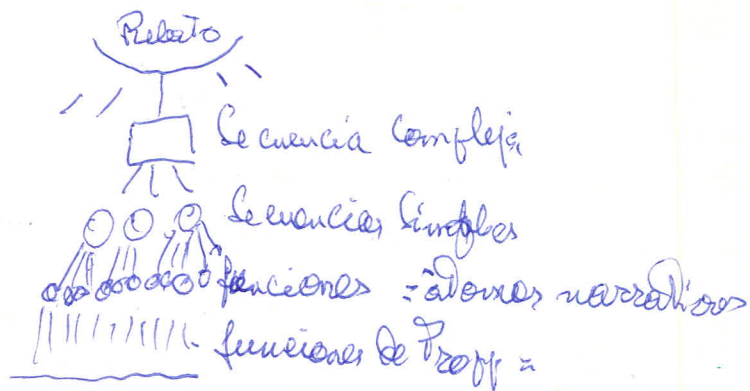 Relato
Secuencia Compleja
Secuencias Simples
funciones = átomos narrativos
funciones de Propp =